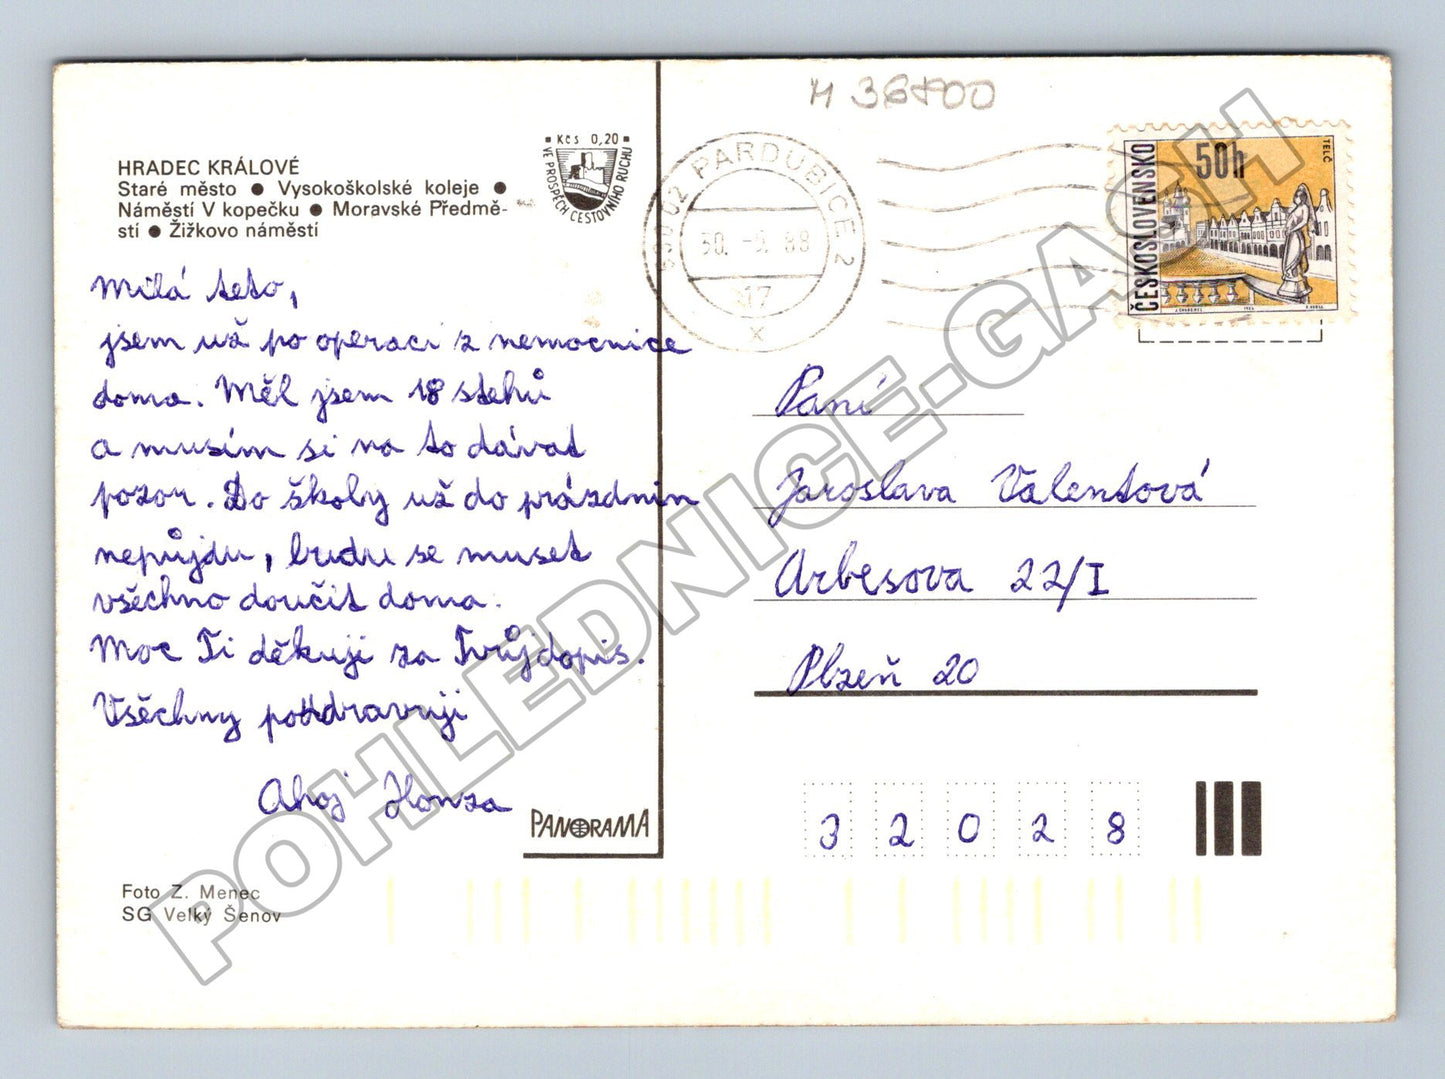 M 36800
HRADEC KRÁLOVÉ
Staré město ● Vysokoškolské koleje ●
Náměstí V kopečku ● Moravské Předmě-
stí ● Žižkovo náměstí
Kčs 0,20
VE PROSPĚCH CESTOVNÍHO RUCHU
Milá teto,
jsem už po operaci z nemocnice
doma. Měl jsem 18 stehů
a musím si na to dávat
pozor. Do školy už do prázdnin
nepůjdu, budu se muset
všechno doučit doma.
Moc Ti děkuji za Tvůjdopis.
Všechny pozdravuji
Ahoj Honza
PANORAMA
Foto Z. Menec
SG Velký Šenov
530 02 PARDUBICE 2
30. -5. 88
17
x
ČESKOSLOVENSKO
50h
TELČ
Paní
Jaroslava Valentová
Arbesova 22/I
Plzeň 20
32028
POHLEDNICE-GASH